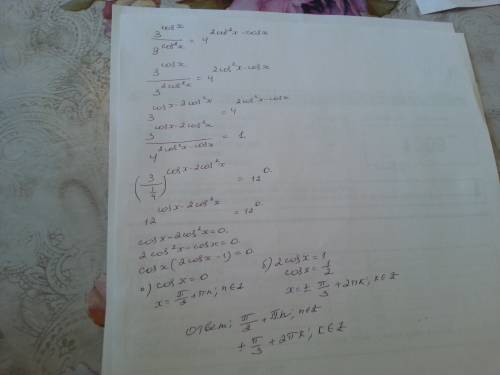 3^cosx / 9^cos²x = 4^2cos²x-cosx
3^cosx / 3^2cos²x = 4^2cos²x-cosx
3^cosx-2cos²x = 4^2cos²x-cosx
3^cosx-2cos²x / 4^2cos²x-cosx = 1.
(3 / 1/4)^cosx-2cos²x = 12^0.
12^cosx-2cos²x = 12^0.
cosx-2cos²x=0.
2cos²x-cosx=0.
cosx(2cosx-1)=0.
а) cosx=0
x=π/2+πn; n∈Z
б) 2cosx=1
cosx=1/2
x=±π/3+2πk; k∈Z
Ответ: π/2+πn; n∈Z
±π/3+2πk; k∈Z